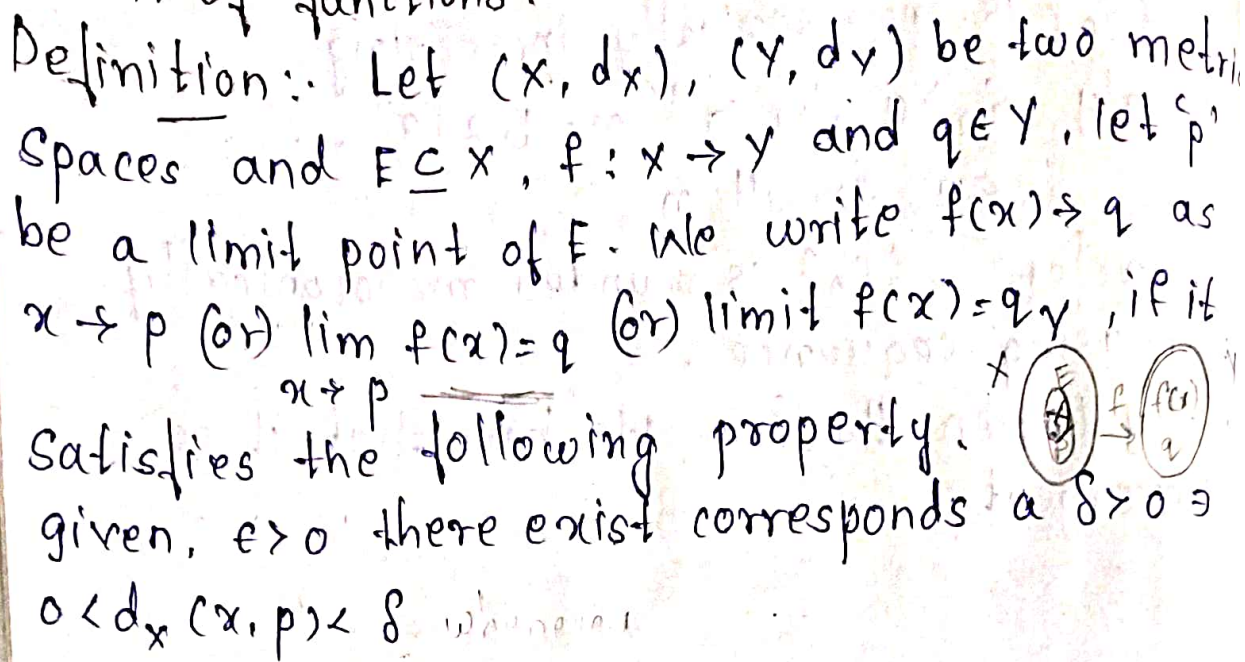 functions.
Definition:. Let (X, dx), (Y, dy) be two metri
spaces and E ⊆ X, f : X → Y and q ∈ Y, let 'p'
be a limit point of E. We write f(x) → q as
x → p (or) lim f(x) = q (or) limit f(x) = q y, if it
x → p
X E f f(x)
satisfies the following property.
q
given, ε > 0 there exist corresponds a δ > 0 ∋
0 < dx (x, p) < δ